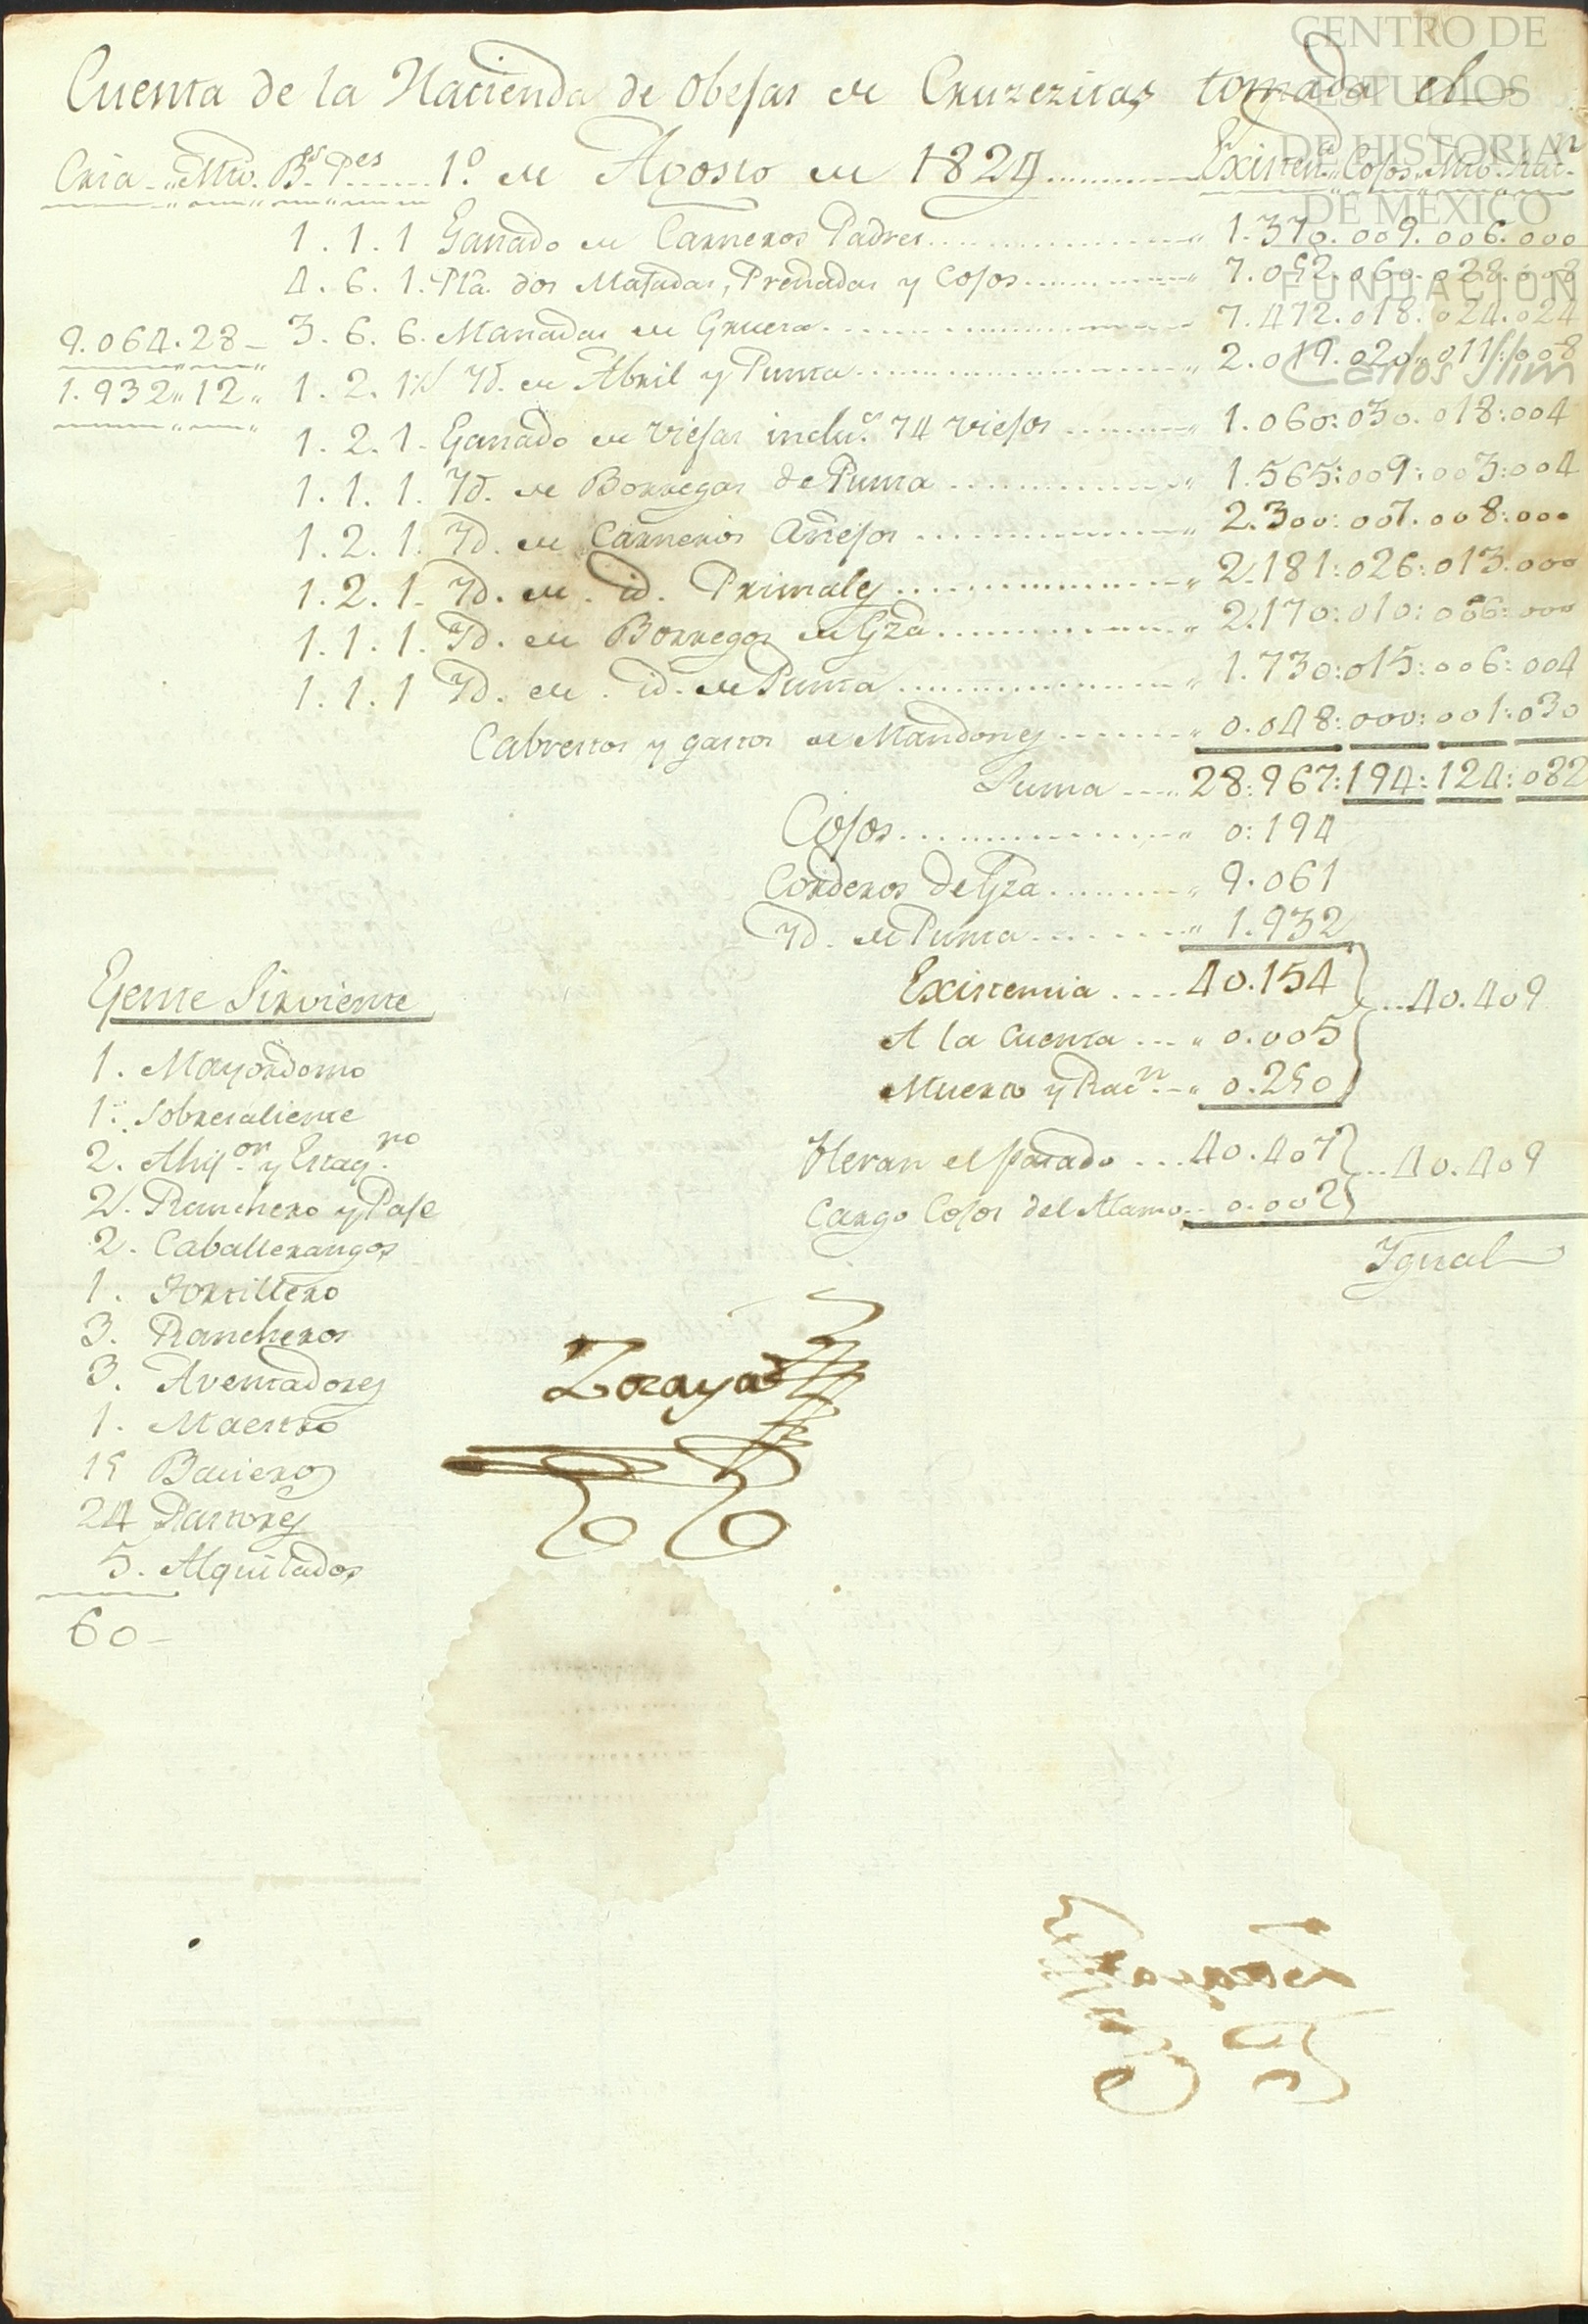 CENTRO DE
ESTUDIOS
DE HISTORIA
DE MEXICO
FUNDACIÓN
Carlos Slim
Cuenta de la Hacienda de obejas de Cruzezitas tomada el
Cria Mto. Bs. Pes 1º de Agosto de 1824 Existena Cojos Mto. Racn
1.1.1 Ganado de Carneros Padres 1.370.009.006.000
4.6.1. Pta. dos Majadas, Preñadas y Cojos 7.052.060.028.008
9.064.28 3.6.6. Manadas de Grueza 7.472.018.024.024
1.932"12" 1.2.1 Yd. de Abril y Punta 2.019.020.011.008
1.2.1. Ganado de viejas inclus. 74 viejos 1.060:030.018:004
1.1.1. Yd. de Borregas de Punta 1.565:009:003:004
1.2.1. Yd. de Carneros Añejos 2.300:007.008:000
1.2.1. Yd. de id. Primales 2.181:026:013:000
1.1.1. Yd. de Borregos de Gza 2.170:010:006:000
1.1.1 Yd. de id. de Punta 1.730:015:006:004
Cabrestos y gastos de Mandones 0.048:000:001:030
Suma 28.967:194:124:082
Cojos 0:194
Corderos de Gza 9.061
Yd. de Punta 1.932
Existencia 40.154 40.409
A la Cuenta 0.005
Muerto y Racn 0.250
Heran el pasado 40.407 40.409
Cargo Cojos del Alamo 0.002
Ygual
Gente Sirviente
1. Mayordomo
1. Sobresaliente
2. Ahijor. y Estaqno.
2. Ranchero y Paje
2. Caballerangos
1. Tortillero
3. Rancheros
3. Aventadores
1. Maestro
15 Bacieros
24 Pastores
5. Alquilados
60
Zoraya